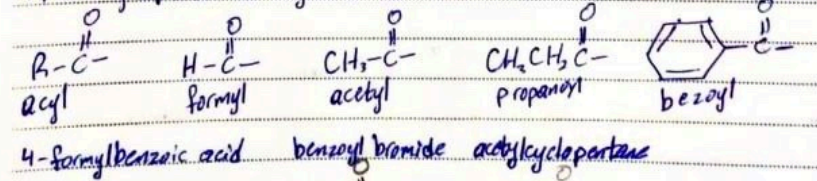 O O O O O
R-C- H-C- CH₃-C- CH₃CH₂C- C-
acyl formyl acetyl propanoyl bezoyl
4-formylbenzoic acid benzoyl bromide acetylcyclopentane